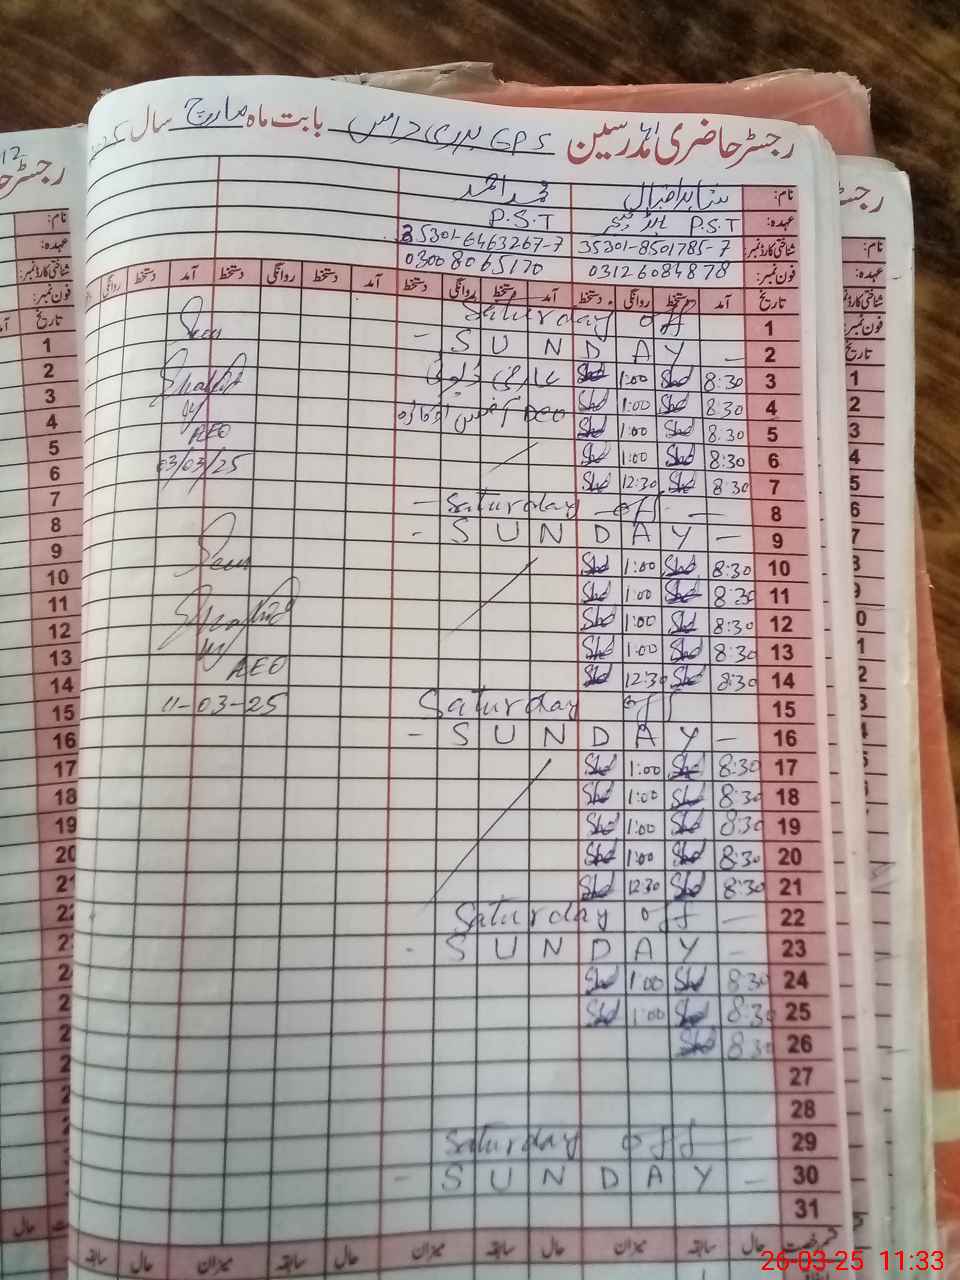 رجسٹر حاضری مدرسین GPS بدری داس بابت ماہ مارچ سال
نام: شاہد اقبال محمد احمد
عہدہ: P.S.T ہیڈ ٹیچر P.S.T
شناختی کارڈ نمبر: 35301-8501785-7 35301-6463267-7
فون نمبر: 03126084878 03008065170
تاریخ آمد دستخط روانگی دستخط آمد دستخط روانگی دستخط آمد دستخط روانگی دستخط آمد
1 Saturday off
2 - S U N D A Y -
3 8:30 Shd 1:00 Shd عارضی ڈیوٹی
4 8:30 Shd 1:00 Shd DEO آفس اوکاڑہ
5 8:30 Shd 1:00 Shd
6 8:30 Shd 1:00 Shd
7 8:30 Shd 12:30 Shd
8 - Saturday - off -
9 - S U N D A Y -
10 8:30 Shd 1:00 Shd
11 8:30 Shd 1:00 Shd
12 8:30 Shd 1:00 Shd
13 8:30 Shd 1:00 Shd
14 8:30 Shd 12:30 Shd
15 Saturday off
16 - S U N D A Y -
17 8:30 Shd 1:00 Shd
18 8:30 Shd 1:00 Shd
19 8:30 Shd 1:00 Shd
20 8:30 Shd 1:00 Shd
21 8:30 Shd 12:30 Shd
22 Saturday off -
23 - S U N D A Y -
24 8:30 Shd 1:00 Shd
25 8:30 Shd 1:00 Shd
26 8:30 Shd
27
28
29 Saturday off -
30 - S U N D A Y -
31
Seen
AEO
03/03/25
Seen
AEO
11-03-25
حال سابقہ میزان حال سابقہ میزان حال سابقہ میزان حال سابقہ
26-03-25 11:33